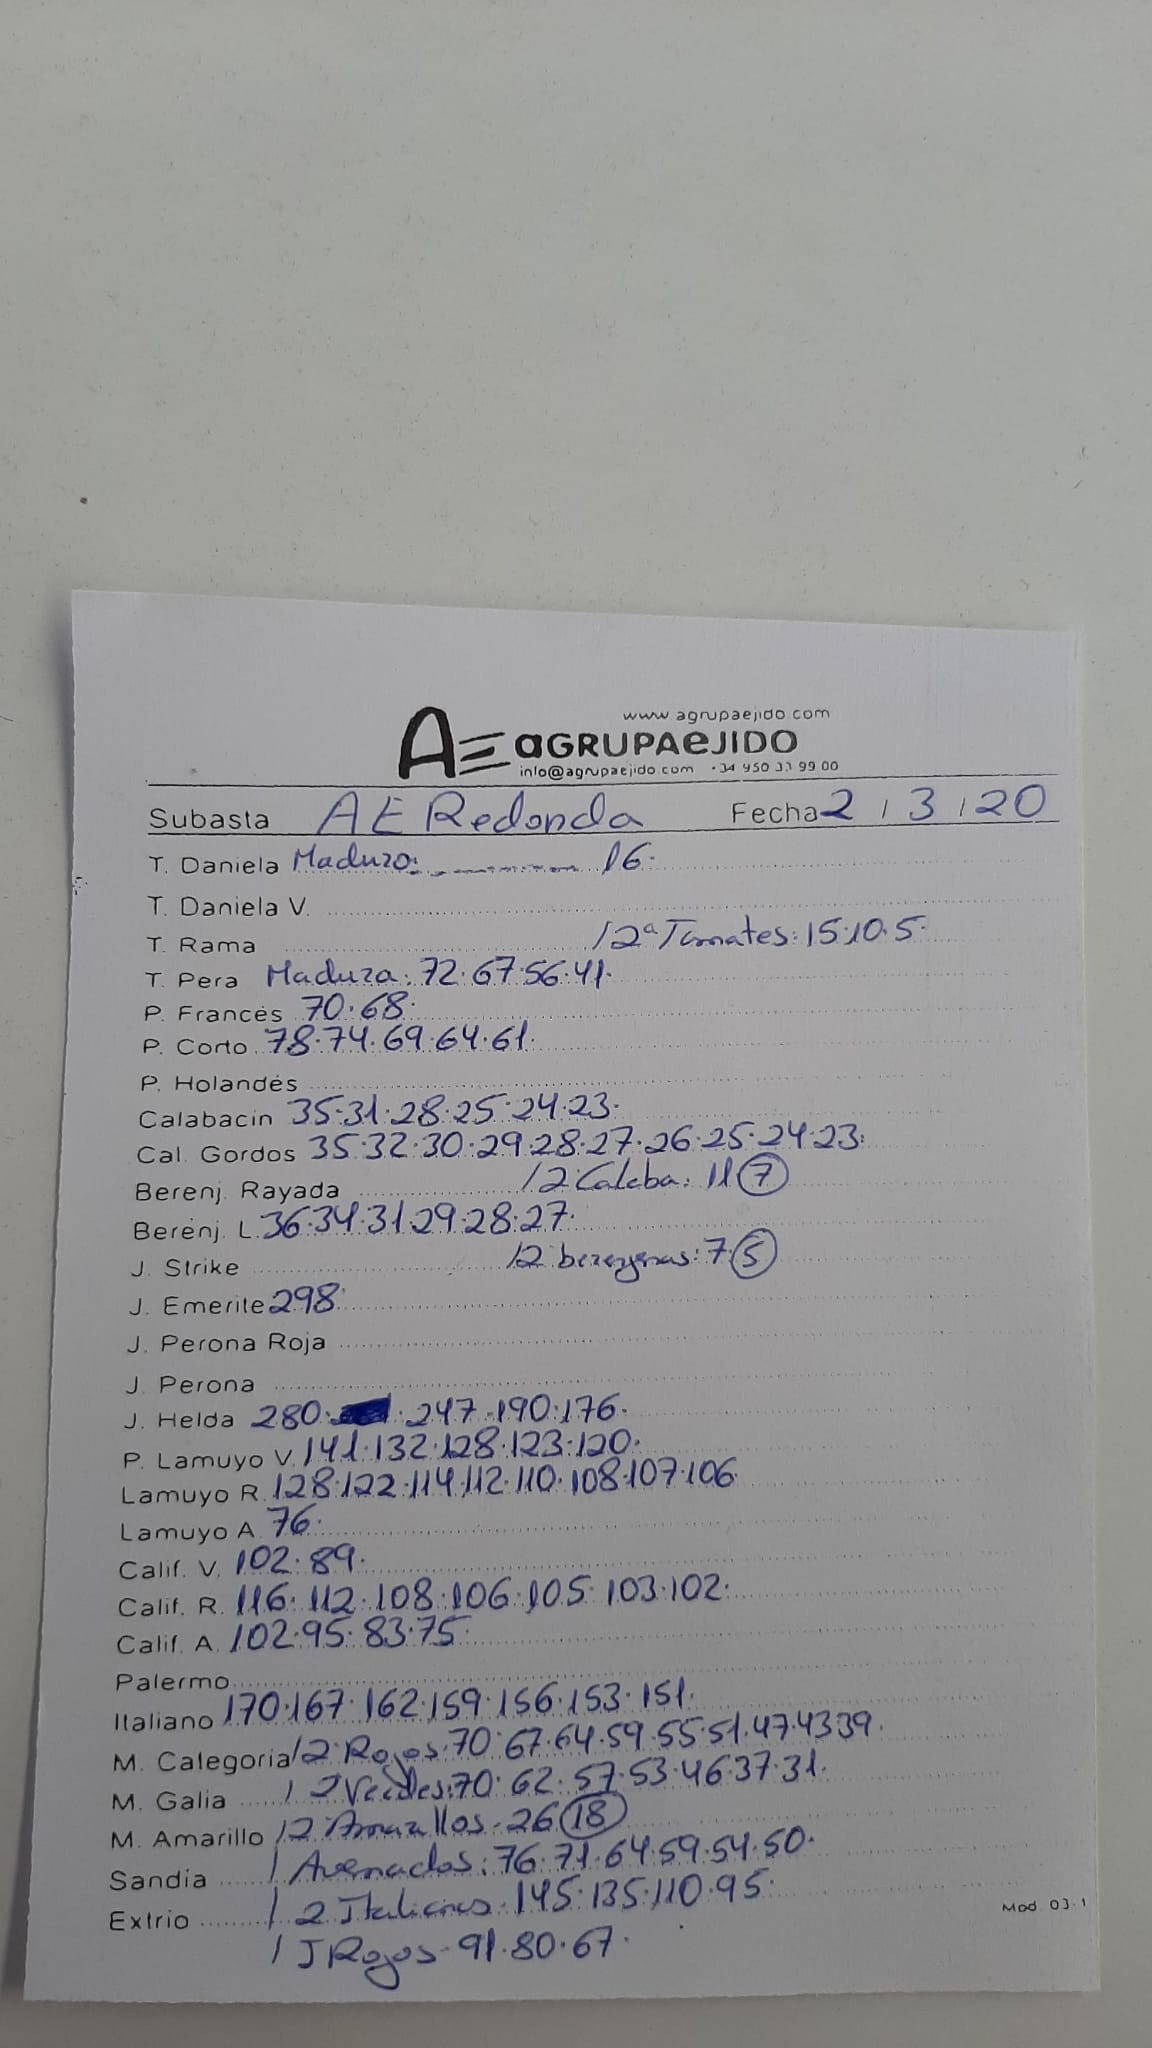 www.agrupaejido.com
AE aGRUPAeJIDO
info@agrupaejido.com +34 950 33 99 00
Subasta AE Redonda Fecha 2 / 3 / 20
T. Daniela Maduro: 16.
T. Daniela V.
T. Rama /2ª Tomates: 15.10.5.
T. Pera Madura: 72.67.56.41.
P. Francés 70.68.
P. Corto 78.74.69.64.61.
P. Holandés
Calabacin 35.31.28.25.24.23.
Cal. Gordos 35.32.30.29.28.27.26.25.24.23.
Berenj. Rayada /2 Calaba: 11 7
Berenj. L. 36.34.31.29.28.27.
J. Strike /2 berenjenas: 7. 5
J. Emerite 298.
J. Perona Roja
J. Perona
J. Helda 280. 247.190.176.
P. Lamuyo V. 141.132.128.123.120.
Lamuyo R. 128.122.114.112.110.108.107.106
Lamuyo A. 76.
Calif. V. 102.89.
Calif. R. 116.112.108.106.105.103.102.
Calif. A. 102.95.83.75.
Palermo
Italiano 170.167.162.159.156.153.151.
M. Categoria /2 Rojos.70.67.64.59.55.51.47.43.39.
M. Galia / 2 Verdes:70.62.57.53.46.37.31.
M. Amarillo /2 Amarillos.26 18
Sandia / Asemados: 76.71.64.59.54.50.
Extrio / 2 Italianos.145.135.110.95.
/ J Rojos.91.80.67.
Mod. 03-1